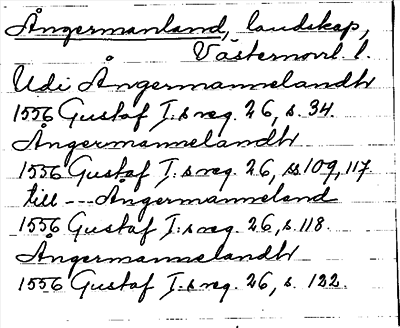 Ångermanland, landskap,
Västernorrl. l.
Udi Ångermannelandh
1556 Gustaf I:s reg. 26, s. 34.
Ångermannelandh
1556 Gustaf I:s reg. 26, ss 109, 117.
till --- Ångermanneland
1556 Gustaf I:s reg. 26, s. 118.
Ångermannelandh
1556 Gustaf I:s reg. 26, s. 122.